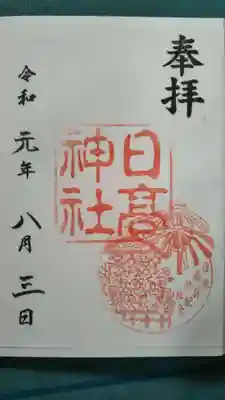 奉拝
日高
神社
令和元年八月三日